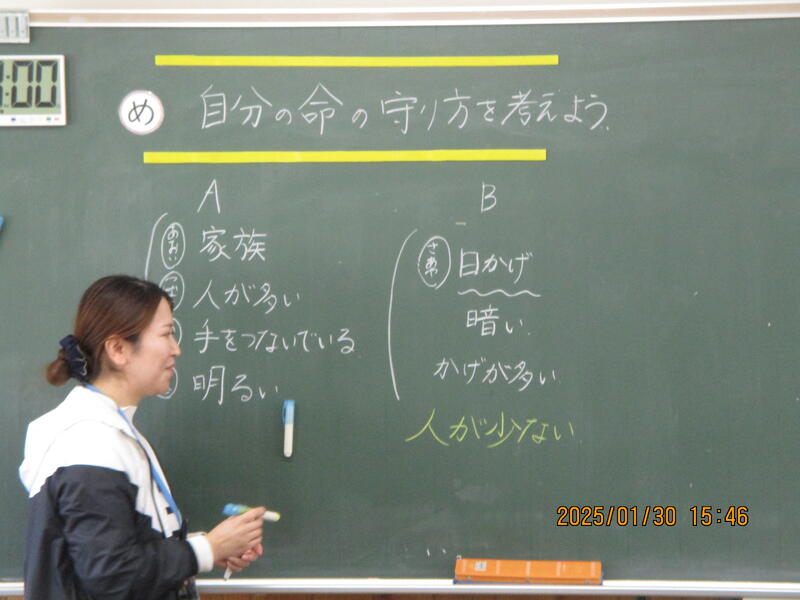 :00
め 自分の命の守り方を考えよう。
A
あおい 家族
人が多い
手をつないでいる
明るい
B
日かげ
暗い
かげが多い
人が少ない
2025/01/30 15:46